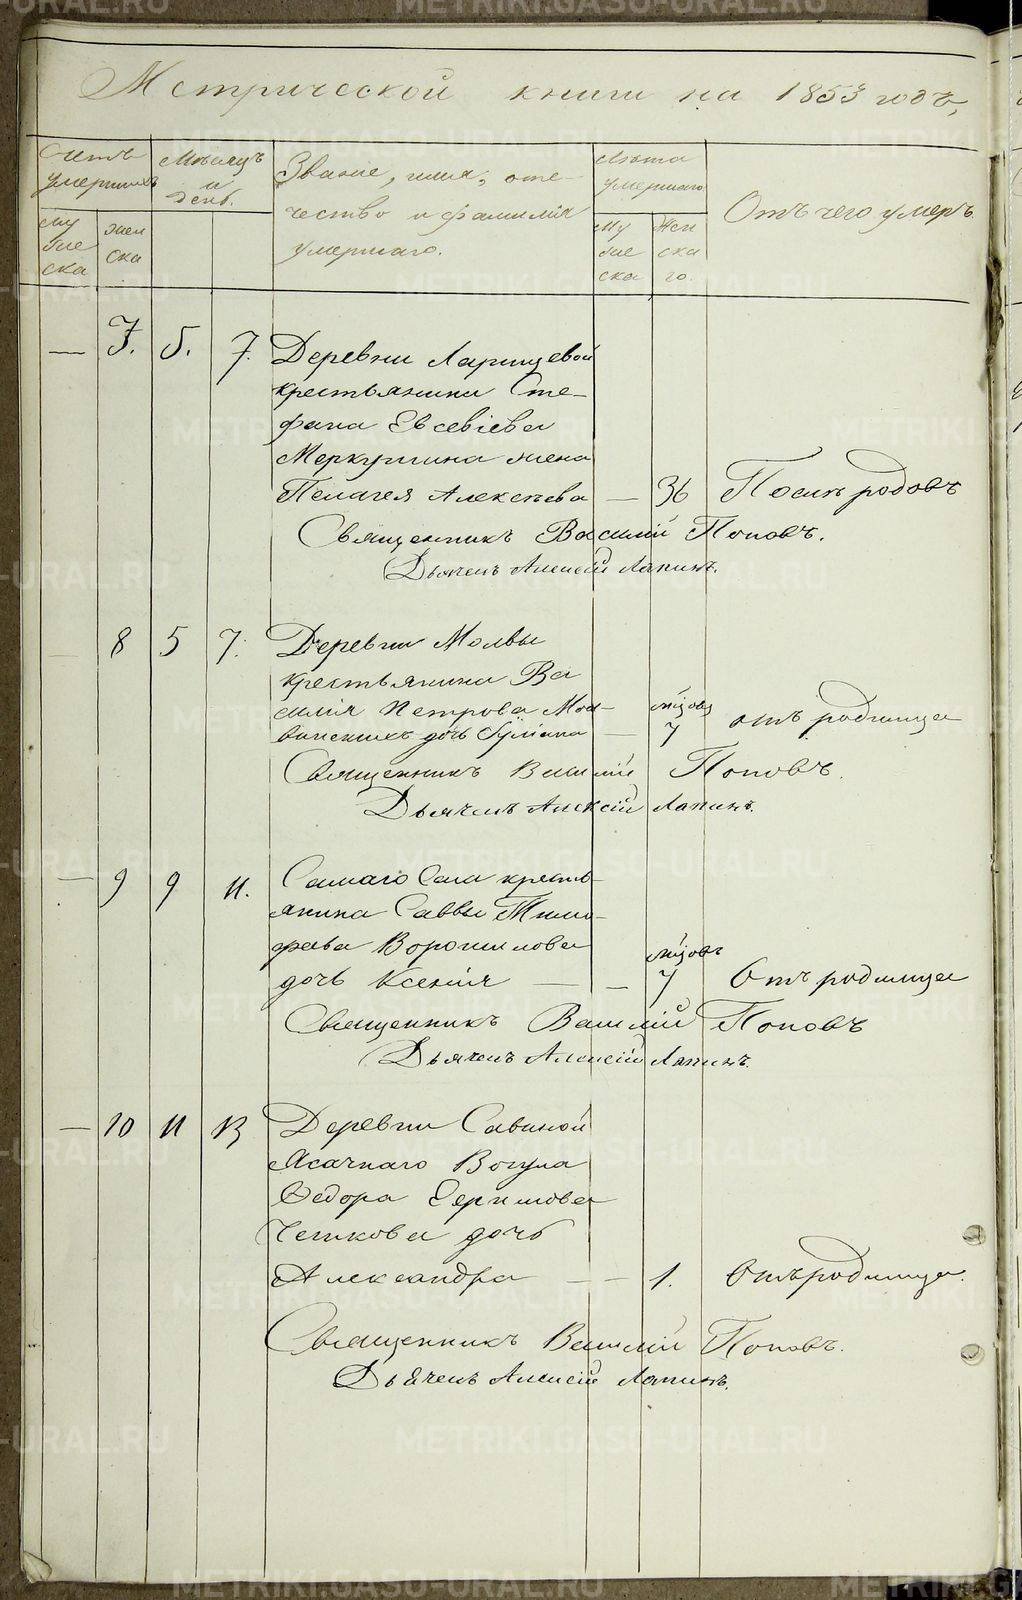 Метрической книги на 1853 годъ,
Счетъ умершихъ
Мѣсяцъ и день.
Званіе, имя, оте-
чество и фамилія
умершаго.
Лѣта умершаго
Отъ чего умеръ.
му
жес
ска
жен
ска
му
жес
ска
Жен
ска
го.
— 7. 5. 7. Деревни Ларинцевой
крестьянина Сте-
фана Евсевіева
Меркушина жена
Пелагея Алексѣева — 36 Послѣ родовъ
Священникъ Василій Поповъ.
Дьячекъ Алексій Лапинъ.
8 5 7. Деревни Молвы
крестьянина Ва
силія Петрова Мол-
дочь — мѣсяцъ 7 отъ родимца
Священникъ Василій Поповъ.
Дьячекъ Алексій Лапинъ.
— 9 9 11. Самаго Села кресть-
янина Саввы Тимо-
феева Ворошилова
дочь Ксенія — — мѣсяцъ 7 Отъ родимца
Священникъ Василій Поповъ
Дьячекъ Алексій Лапинъ.
— 10 11 13 Деревни Савиной
Ясачнаго Вогула
Ѳедора Ермилова
дочь
Александра — — 1. Отъ родимца.
Священникъ Василій Поповъ.
Дьячекъ Алексій Лапинъ.
METRIKI.GASO-URAL.RU